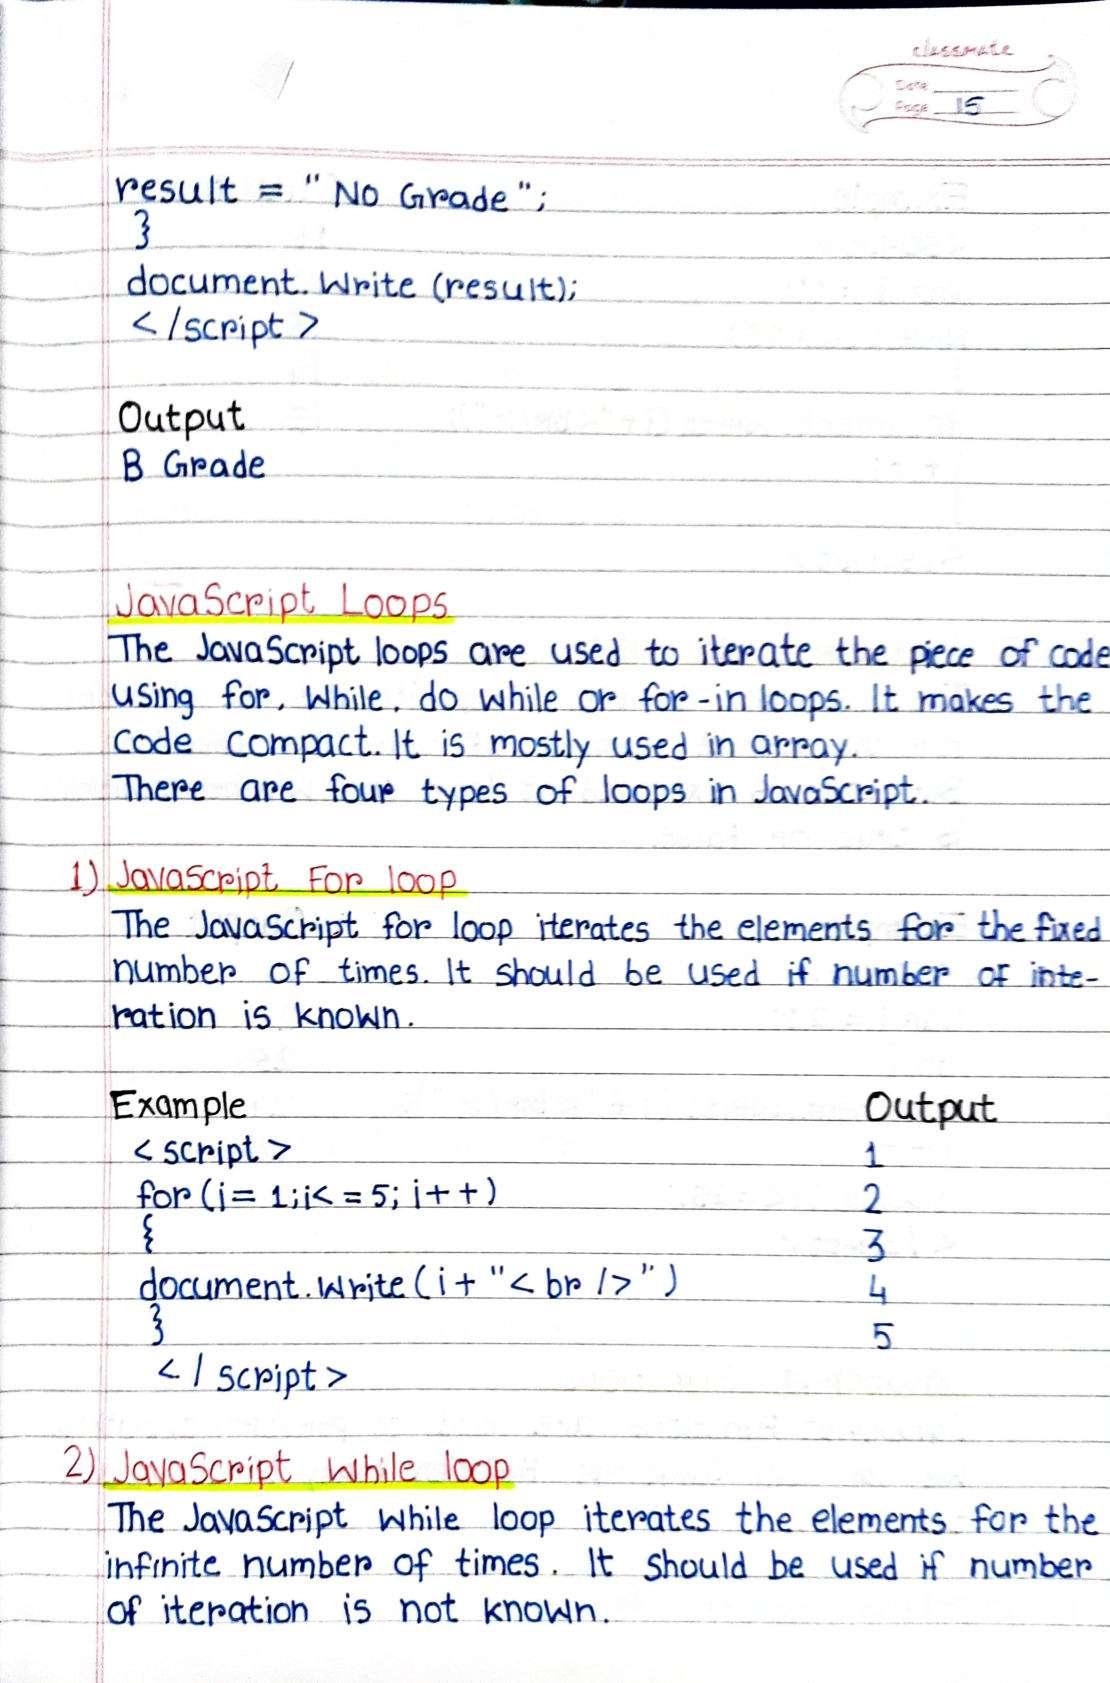 classmate
Date
Page 15
result = "No Grade";
}
document.Write (result);
</script>
Output
B Grade
JavaScript Loops
The JavaScript loops are used to iterate the piece of code
using for, While, do while or for-in loops. It makes the
code compact. It is mostly used in array.
There are four types of loops in JavaScript.
1) JavaScript For loop
The JavaScript for loop iterates the elements for the fixed
number of times. It should be used if number of inte-
ration is known.
Example Output
<script> 1
for (i= 1;i<=5; i++) 2
{ 3
document.Write(i+ "<br />") 4
} 5
</script>
2) JavaScript While loop
The JavaScript While loop iterates the elements for the
infinite number of times. It should be used if number
of iteration is not known.